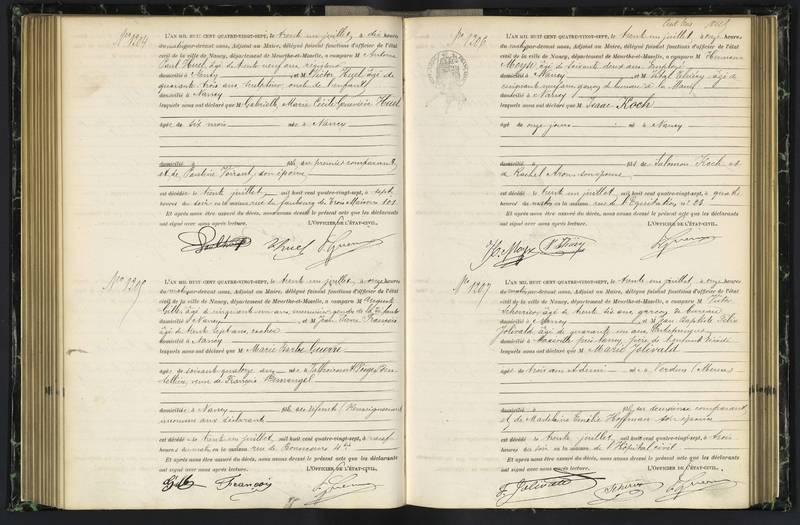 No 1204
L'AN MIL HUIT CENT QUATRE-VINGT-SEPT, le trente un juillet, à dix heures
du matin, par-devant nous, Adjoint au Maire, délégué faisant fonctions d'officier de l'état
civil de la ville de Nancy, département de Meurthe-et-Moselle, a comparu M. Antoine
Paul Huel, âgé de trente neuf ans,
domicilié à Nancy et M Victor Huel âgé de
quarante trois ans, sculpteur, oncle de l'enfant
domicilié à Nancy
lesquels nous ont déclaré que M Gabrielle Marie Cécile Geneviève Huel
âgée de six mois née à Nancy
domicilié à fils du premier comparant,
et de Pauline son épouse
est décédée le trente juillet, mil huit cent quatre-vingt-sept, à sept
heures du soir en sa maison, rue du faubourg des Trois Maisons 101
Et après nous être assuré du décès, nous avons dressé le présent acte que les déclarants
ont signé avec nous après lecture. L'OFFICIER DE L'ÉTAT-CIVIL,
L'AN MIL HUIT CENT QUATRE-VINGT-SEPT, le trente un juillet, à onze heures
du matin, par-devant nous, Adjoint au Maire, délégué faisant fonctions d'officier de l'état
civil de la ville de Nancy, département de Meurthe-et-Moselle, a comparu M Auguste
âgé de cinquante un ans,
domicilié à Nancy et M Jean Pierre François
âgé de trente sept ans, cocher
domicilié à Nancy
lesquels nous ont déclaré que M Marie Barbe Guerre
âgée de soixante quatorze ans née à
veuve de François
domicilié à Nancy fils de défunts (Renseignement
inconnu aux déclarants
est décédée le trente un juillet, mil huit cent quatre-vingt-sept, à neuf
heures du matin en sa maison rue de
Et après nous être assuré du décès, nous avons dressé le présent acte que les déclarants
ont signé avec nous après lecture. L'OFFICIER DE L'ÉTAT-CIVIL,
François
No 1206
L'AN MIL HUIT CENT QUATRE-VINGT-SEPT, le trente un juillet, à onze heures
du matin, par-devant nous, Adjoint au Maire, délégué faisant fonctions d'officier de l'état
civil de la ville de Nancy, département de Meurthe-et-Moselle, a comparu M Hermann
Moyse, âgé de soixante deux ans, Employé
domicilié à Nancy et M âgé de
cinquante neuf ans, garçon de bureau à la Mairie
domicilié à Nancy
lesquels nous ont déclaré que M Isaac Koch
âgé de onze jours né à Nancy
domicilié à fils de Salomon Koch et
de Rachel Aron son épouse
est décédé le trente un juillet, mil huit cent quatre-vingt-sept, à quatre
heures du matin en sa maison rue de l'Equitation no 28
Et après nous être assuré du décès, nous avons dressé le présent acte que les déclarants
ont signé avec nous après lecture. L'OFFICIER DE L'ÉTAT-CIVIL,
H. Moyse
No 1207
L'AN MIL HUIT CENT QUATRE-VINGT-SEPT, le trente un juillet, à onze heures
du matin, par-devant nous, Adjoint au Maire, délégué faisant fonctions d'officier de l'état
civil de la ville de Nancy, département de Meurthe-et-Moselle, a comparu M Victor
âgé de trente six ans, garçon de bureau
domicilié à Nancy et M Jean Baptiste Félix
Jolivald, âgé de quarante un ans,
domicilié à Maxéville près Nancy, père de l'enfant décédé
lesquels nous ont déclaré que M Marie Jolivald
âgée de trois ans et demi née à Verdun (Meuse)
domicilié à fille du deuxième comparant
et de Madeleine Emélie Hoffman son épouse
est décédée le trente juillet, mil huit cent quatre-vingt-sept, à trois
heures du soir en sa maison de l'Hôpital civil
Et après nous être assuré du décès, nous avons dressé le présent acte que les déclarants
ont signé avec nous après lecture. L'OFFICIER DE L'ÉTAT-CIVIL,
F. Jolivald